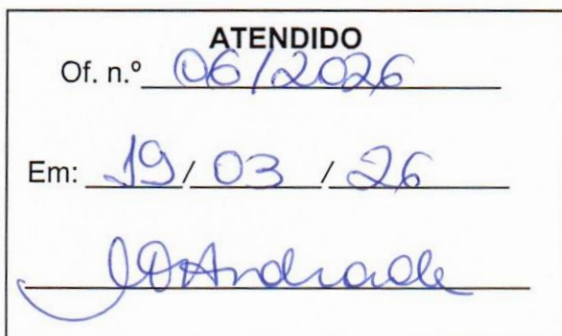 ATENDIDO
Of. n.º 06/2026
Em: 19/03/26
Andrade